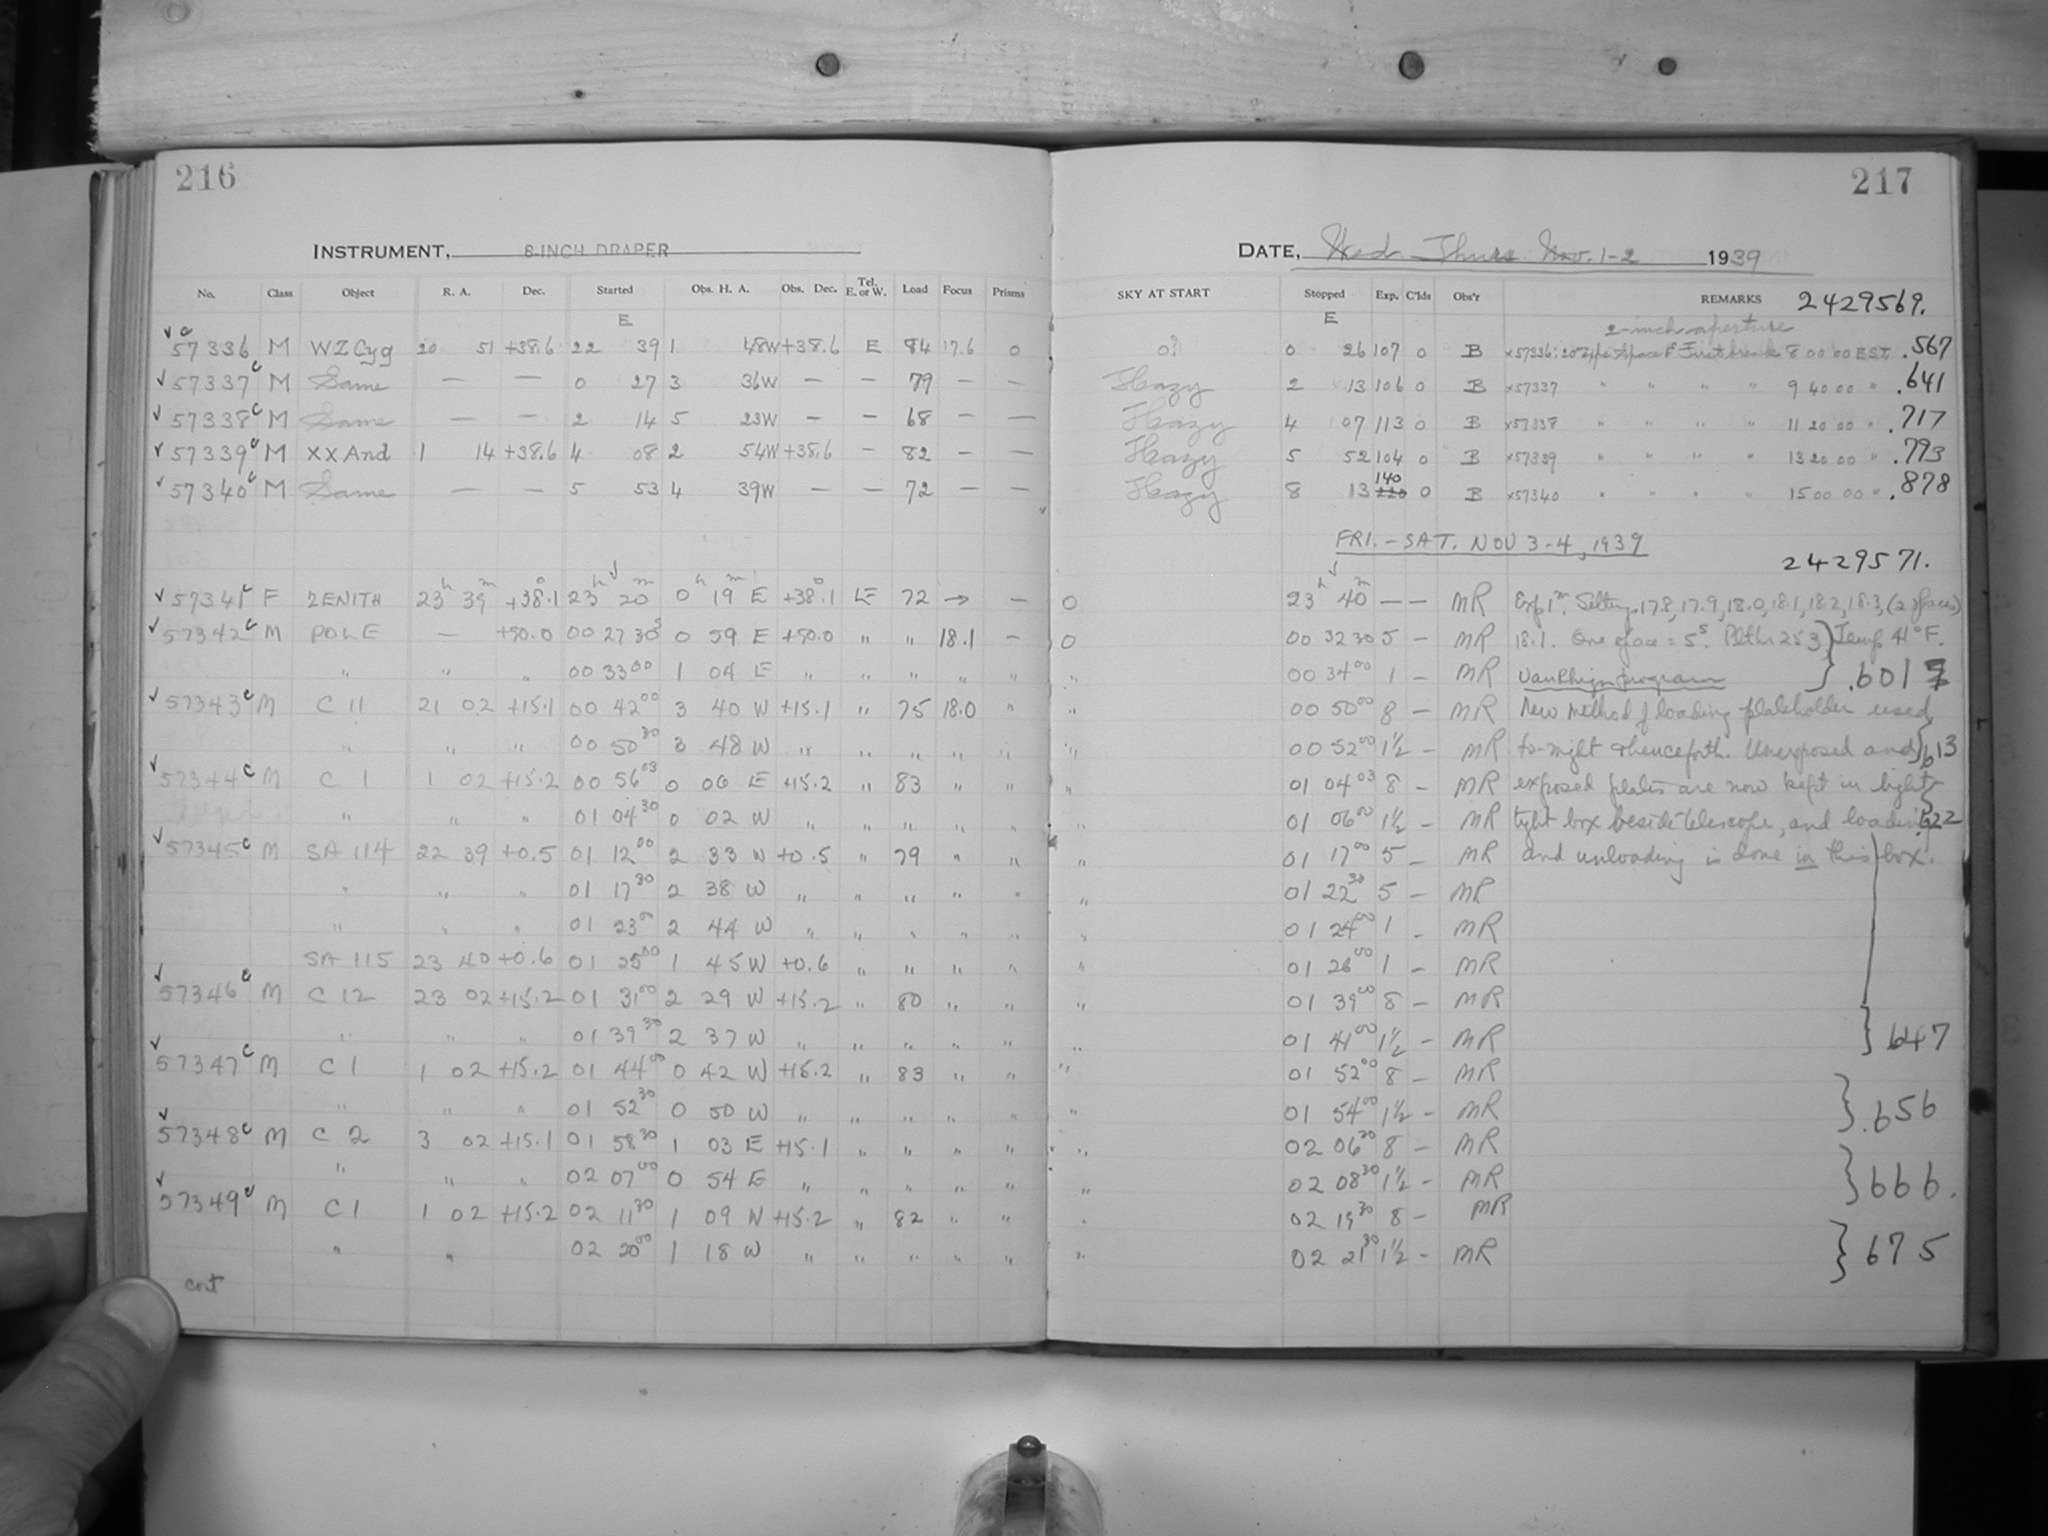 216
217
INSTRUMENT, 8-INCH DRAPER
DATE, Wed. Thurs. Nov. 1-2 1939
No. Class Object R. A. Dec. Started Obs. H. A. Obs. Dec. Tel. E. or W. Load Focus Prisms SKY AT START Stopped Exp. C'lds Obs'r REMARKS 2429569.
E E 2-inch aperture
√ 57336 c M WZ Cyg 20 51 +38.6 22 39 1 48W +38.6 E 84 17.6 0 0? 0 26 107 0 B x57336: First break 8 00 00 EST .567
√ 57337 c M Same — — 0 27 3 36W — — 79 — — Hazy 2 13 106 0 B x57337 " " " " 9 40 00 " .641
√ 57338 c M Same — — 2 14 5 23W — — 68 — — Hazy 4 07 113 0 B x57338 " " " " 11 20 00 " .717
√ 57339 c M XX And 1 14 +38.6 4 08 2 54W +38.6 — 82 — — Hazy 5 52 104 0 B x57339 " " " " 13 20 00 " .793
√ 57340 c M Same — — 5 53 4 39W — — 72 — — Hazy 8 13 140 220 0 B x57340 " " " " 15 00 00 " .878
FRI. - SAT. NOV 3-4, 1939
2429571.
√ 57341 c F ZENITH 23h 39m +38.1 23h 20m 0h 19m E +38.1 E 72 → — 0 23h 40m — — MR Exp 1m. Setting 17.8, 17.9, 18.0, 18.1, 18.2, 18.3, (2 spaces)
√ 57342 c M POLE — +50.0 00 27 30s 0 59 E +50.0 " " 18.1 — 0 00 32 30 5 — MR 18.1. One space = 5s. Plth 253 } Temp 41°F.
" " " 00 33 00 1 04 E " " " " " " 00 34 00 1 — MR Van Rhijn program } .601
√ 57343 c M C 11 21 02 +15.1 00 42 00 3 40 W +15.1 " 75 18.0 " " 00 50 00 8 — MR New method of loading plateholder used
" " " 00 50 30 3 48 W " " " " " " 00 52 00 1½ — MR to-night & henceforth. Unexposed and } 613
√ 57344 c M C 1 1 02 +15.2 00 56 03 0 06 E +15.2 " 83 " " " 01 04 03 8 — MR exposed plates are now kept in light
" " " 01 04 30 0 02 W " " " " " " 01 06 00 1½ — MR tight box beside telescope, and loading } 622
√ 57345 c M SA 114 22 39 +0.5 01 12 00 2 33 W +0.5 " 79 " " " 01 17 00 5 — MR and unloading is done in this box.
" " " 01 17 30 2 38 W " " " " " " 01 22 30 5 — MR
" " " 01 23 00 2 44 W " " " " " " 01 24 00 1 — MR
SA 115 23 40 +0.6 01 25 00 1 45 W +0.6 " " " " " 01 26 00 1 — MR
√ 57346 c M C 12 23 02 +15.2 01 31 00 2 29 W +15.2 " 80 " " " 01 39 00 8 — MR
" " " 01 39 30 2 37 W " " " " " " 01 41 00 1½ — MR } 647
√ 57347 c M C 1 1 02 +15.2 01 44 00 0 42 W +15.2 " 83 " " " 01 52 00 8 — MR
" " " 01 52 30 0 50 W " " " " " " 01 54 00 1½ — MR } .656
√ 57348 c M C 2 3 02 +15.1 01 58 30 1 03 E +15.1 " " " " " 02 06 30 8 — MR
" " " 02 07 00 0 54 E " " " " " " 02 08 30 1½ — MR } 666.
√ 57349 c M C 1 1 02 +15.2 02 11 30 1 09 W +15.2 " 82 " " " 02 19 30 8 — MR
" " 02 20 00 1 18 W " " " " " " 02 21 30 1½ — MR } 675
cont